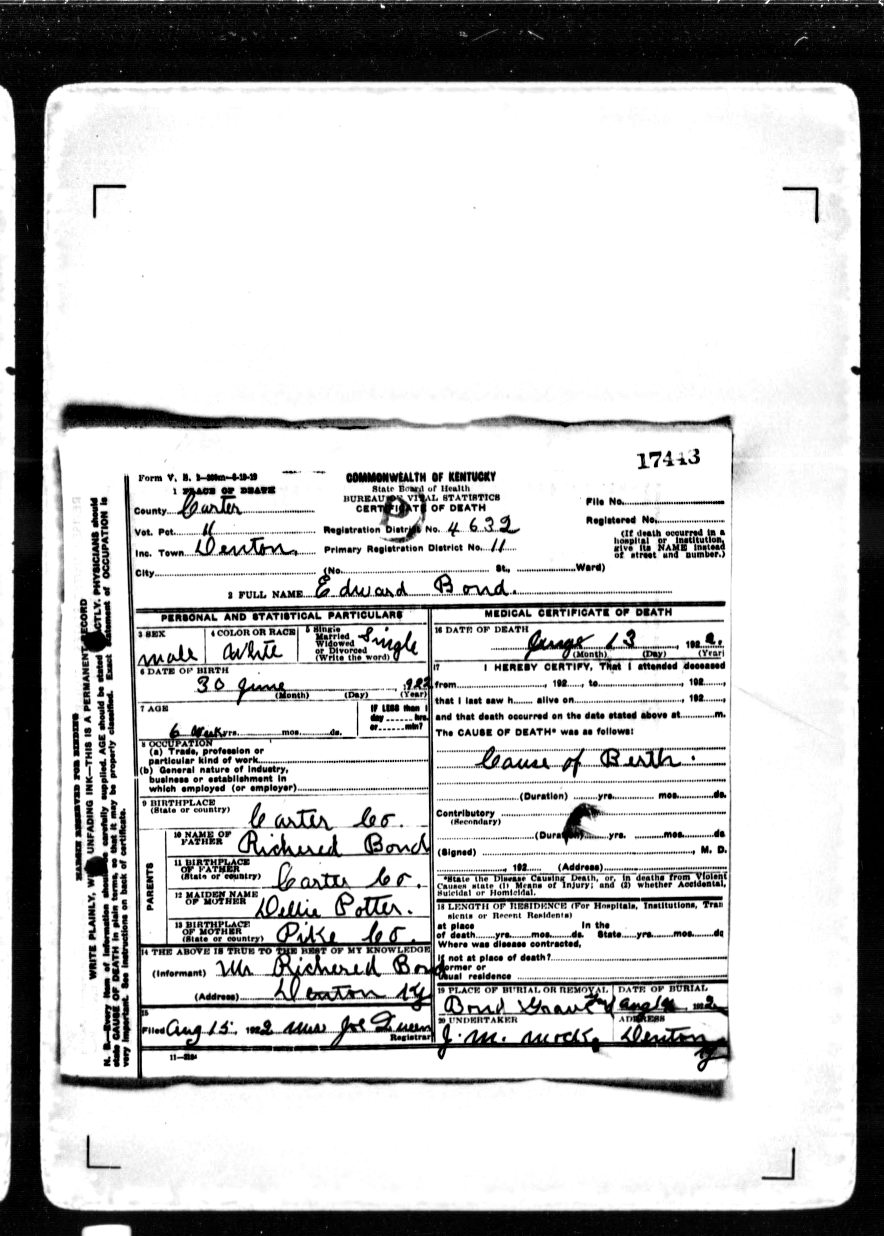 17443
Form V. S.
COMMONWEALTH OF KENTUCKY
State Board of Health
BUREAU OF VITAL STATISTICS
CERTIFICATE OF DEATH
1 PLACE OF DEATH
County Carter
Vot. Pct. 11
Inc. Town Denton,
City
Registration District No. 4632
Primary Registration District No. 11
(No. St., Ward)
File No.
Registered No.
(If death occurred in a
hospital or institution,
give its NAME instead
of street and number.)
2 FULL NAME Edward Bond.
PERSONAL AND STATISTICAL PARTICULARS
3 SEX
male
4 COLOR OR RACE
White
5 Single
Married
Widowed
or Divorced
(Write the word)
Single
6 DATE OF BIRTH
30 June 1922
(Month) (Day) (Year)
7 AGE
6 yrs. mos. ds.
IF LESS than 1
day hrs.
or min?
8 OCCUPATION
(a) Trade, profession or
particular kind of work
(b) General nature of industry,
business or establishment in
which employed (or employer)
9 BIRTHPLACE
(State or country)
Carter Co.
PARENTS
10 NAME OF
FATHER
Richered Bond
11 BIRTHPLACE
OF FATHER
(State or country)
Carter Co.
12 MAIDEN NAME
OF MOTHER
Dellie Potter.
13 BIRTHPLACE
OF MOTHER
(State or country)
Pike Co.
14 THE ABOVE IS TRUE TO THE BEST OF MY KNOWLEDGE
(Informant) Mr Richered Bond
(Address) Denton Ky
15
Filed Aug 15, 1922 Mrs Joe
Registrar
11—3184
MEDICAL CERTIFICATE OF DEATH
16 DATE OF DEATH
13 1922.
(Month) (Day) (Year)
17 I HEREBY CERTIFY, That I attended deceased
from 192, to 192,
that I last saw h alive on 192,
and that death occurred on the date stated above at m.
The CAUSE OF DEATH* was as follows:
Cause of Berth.
(Duration) yrs. mos. ds.
Contributory
(Secondary)
(Duration) yrs. mos. ds
(Signed) M. D.
192 (Address)
*State the Disease Causing Death, or, in deaths from Violent
Causes state (1) Means of Injury; and (2) whether Accidental,
Suicidal or Homicidal.
18 LENGTH OF RESIDENCE (For Hospitals, Institutions, Tran
sients or Recent Residents)
at place In the
of death yrs. mos. ds. State yrs. mos. ds
Where was disease contracted,
if not at place of death?
former or
usual residence
19 PLACE OF BURIAL OR REMOVAL
Bond Grave Yd
DATE OF BURIAL
Aug 1922
20 UNDERTAKER
J. M. Mocks,
ADDRESS
Denton
Ky
MARGIN RESERVED FOR BINDING
WRITE PLAINLY, WITH UNFADING INK—THIS IS A PERMANENT RECORD
N. B.—Every item of information should be carefully supplied. AGE should be stated EXACTLY. PHYSICIANS should
state CAUSE OF DEATH in plain terms, so that it may be properly classified. Exact statement of OCCUPATION is
very important. See instructions on back of certificate.